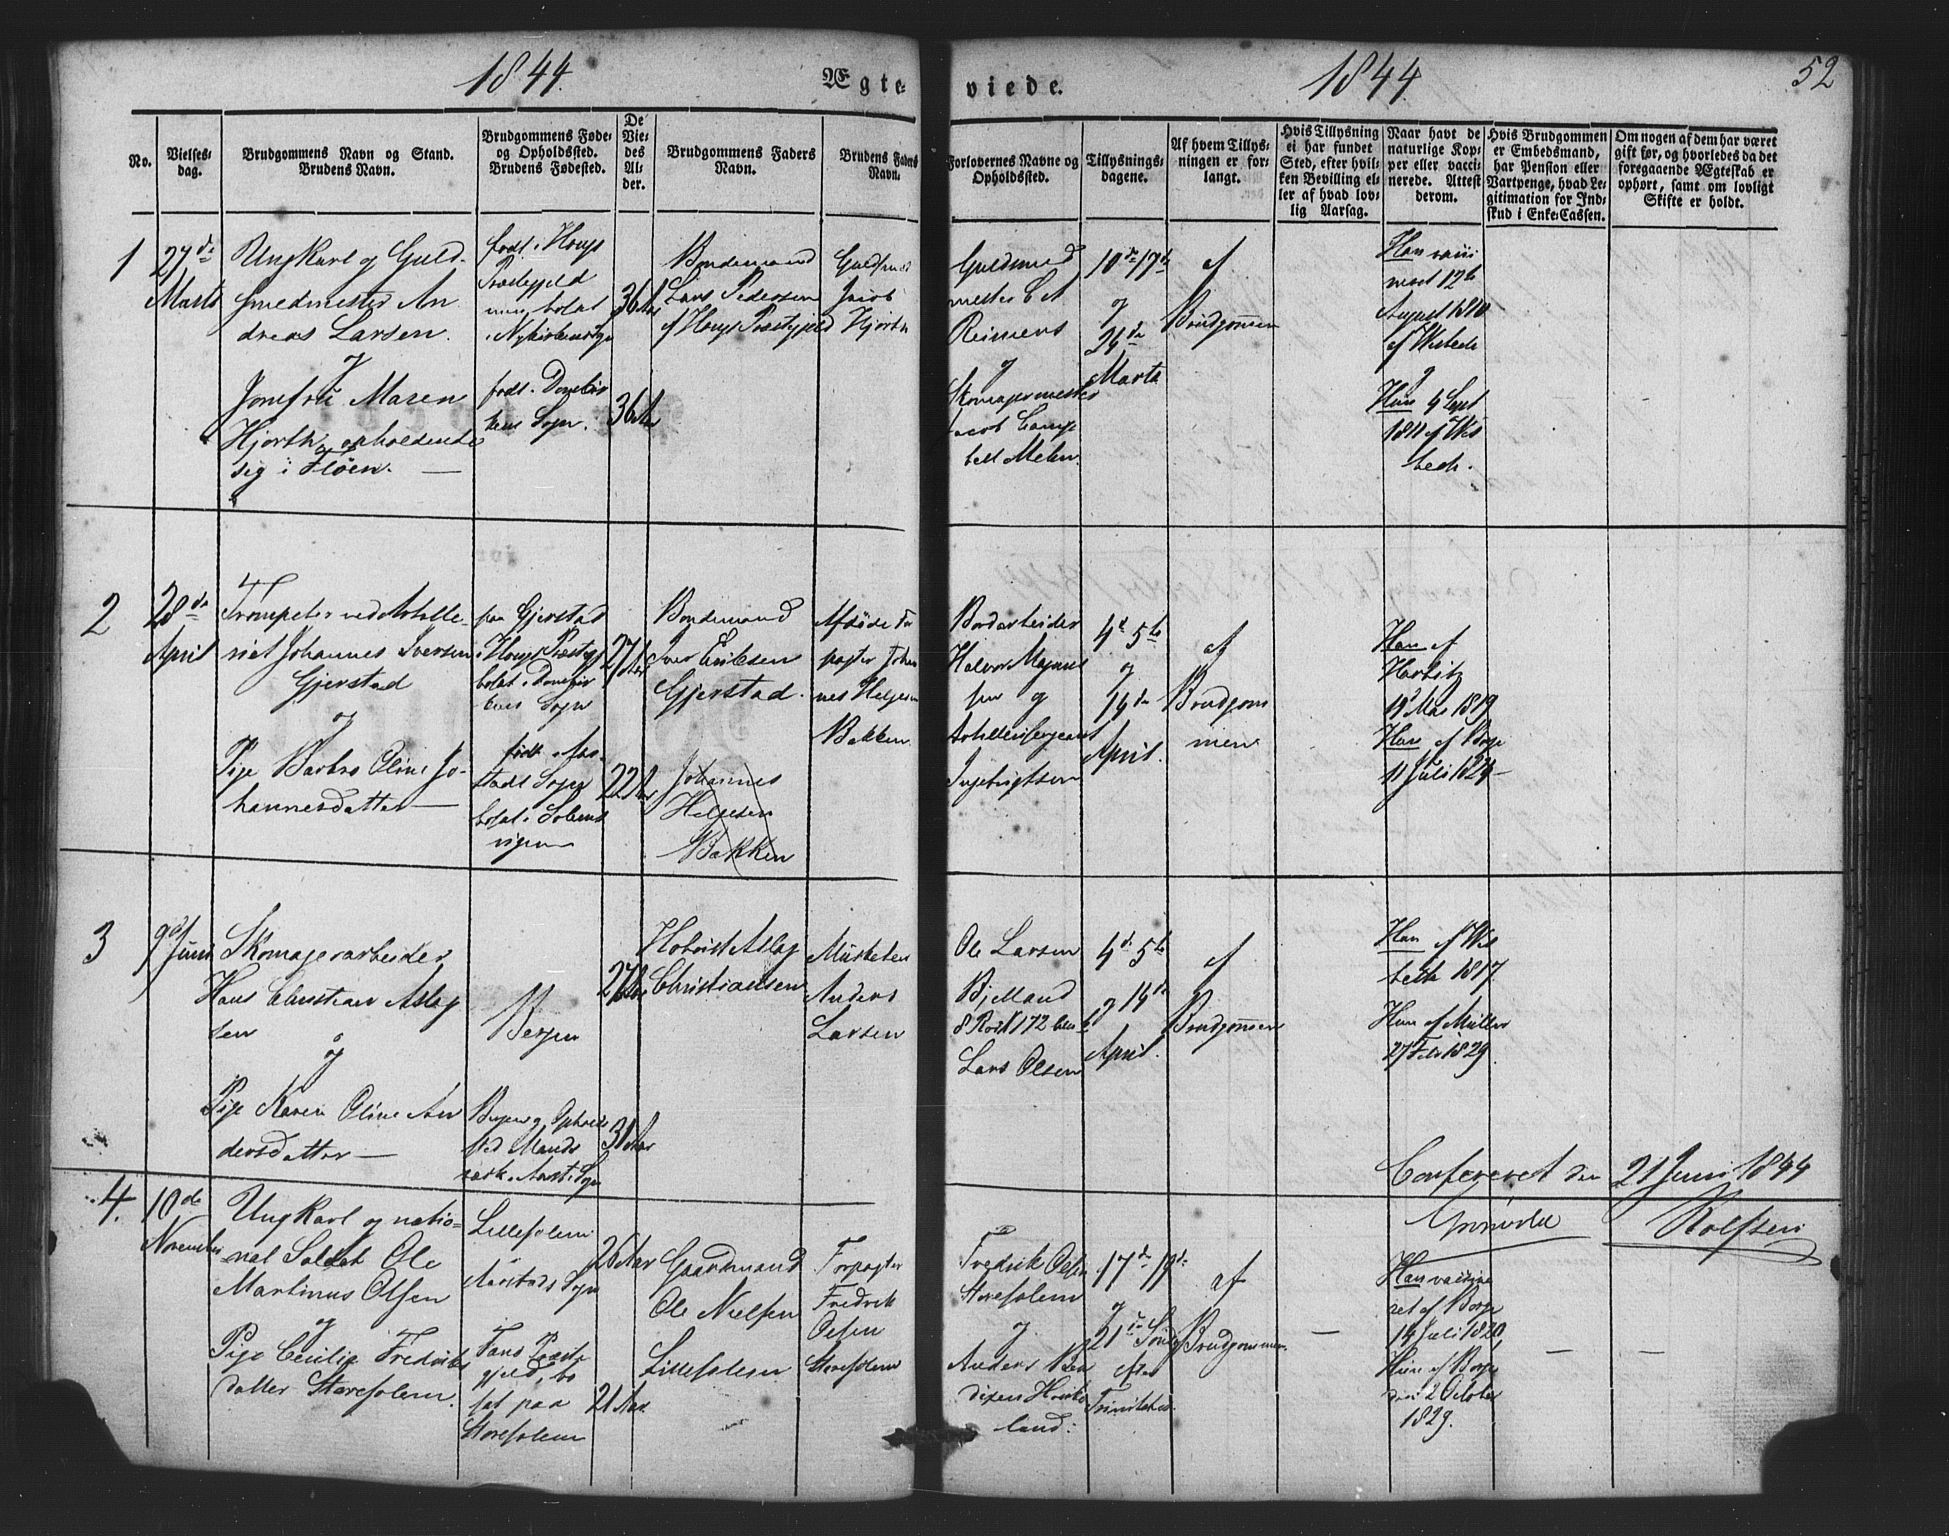 1844.
Ægte-
viede.
1844
52
No.
Vielses-
dag.
Brudgommens Navn og Stand.
Brudens Navn.
Brudgommens Føde-
og Opholdssted.
Brudens Fødested.
De
Vie-
des
Al-
der.
Brudgommens Faders
Navn.
Brudens Faders
Navn.
Forlovernes Navne og
Opholdssted.
Tillysnings-
dagene.
Af hvem Tillys-
ningen er for-
langt.
Hvis Tillysning
ei har fundet
Sted, efter hvil-
ken Bevilling el-
ler af hvad lov-
lig Aarsag.
Naar havt de
naturlige Kop-
per eller vacci-
nerede. Attest
derom.
Hvis Brudgommen
er Embedsmand,
har Pension eller
Vartpenge, hvad Le-
gitimation for Ind-
skud i Enke-Cassen.
Om nogen af dem har været
gift før, og hvorledes da det
foregaaende Ægteskab er
ophørt, samt om lovligt
Skifte er holdt.
1
27de
Marts
Ungkarl og Guld-
smedmester An
dreas Larsen.
og
Jomfru Maren
Hjorth opholdende
sig i Fløen.
født i Hougs
Præstegjeld
nu bolat
i Nykirkens Sogn
født i Domkir
kens Sogn.
36 Aar
36 Aar
Bondemand
Lars Pedersen
af Hougs Præstegjeld
Guldsmed
Jacob
Hjorth
Guldsmed
mester C A
Reimers
og
Skomagermester
Jacob Camp
bell Melen.
10de 17de
og
24de
Marts
af
Brudgommen
Han vacci
neret 12te
August 1810
af Wisbech
og
Hun 4 Sept
1811 af Wis
bech.
2
28de
April
Trompeter ved Artille-
riet Johannes Iversen
Gjerstad
og
Pige Barbro Oline Jo-
hannesdatter
paa Gjerstad
i Hougs Præstegj
bolat i Domkir
kens Sogn
født i Aar
stads Sogn
bolat i Solems
vigen
27 Aar
22 Aar
Bondemand
Iver Eriksen
Gjerstad.
Johannes
Helgesen
Bakken
Afdøde For
pagter Johan
nes Helgesen
Bakken
Bordarbeider
Halvor Magnus
sen og
Artillerisergeant
Ingebrigtsen
4de 5te
og
14de
April.
af
Brudgom
men
Han af
Harbitz
19 Mai 1819
Hun af Borge
11 Juli 1824
3
9de Juni
Skomagerarbeider
Hans Christian Aslag
sen
og
Pige Karen Oline An
dersdatter
Bergen
Bergen og Ophold
sted Mands
værk i Aarst. Sogn
27 Aar
31 Aar
Hoboist Aslag
Christiansen
Musketeer
Anders
Larsen
Ole Larsen
Bjelland
8 Rode N 172
Lars Olsen
4de 5te
og 14de
April.
af
Brudgommen
Han af Wis
bech 1817
Hun af Müller
27 Feb 1829.
Confereret den 21 Juni 1844
Rolfsen
4.
10de
November
Ungkarl og natio-
nal Soldat Ole
Martinus Olsen
og
Pige Cecilie Fredriks
datter Storesolem.
Lillesolem
Aarstads Sogn
Fans Præste
gjeld, bo
sat paa
Storesolem
26 Aar
21 Aar
Gaardmand
Ole Nielsen
Lillesolem
Forpagter
Fredrik
Olsen
Storesolem
Fredrik Olsen
Storesolem
og
Anders Ben
dixen Houke
land.
17de 19de
og
21de Sønd
efter
Trinitatis
af
Brudgommen
Han vaccine
ret af Borge
14 Juli 1820
Hun af Borge
den 2 October
1829.